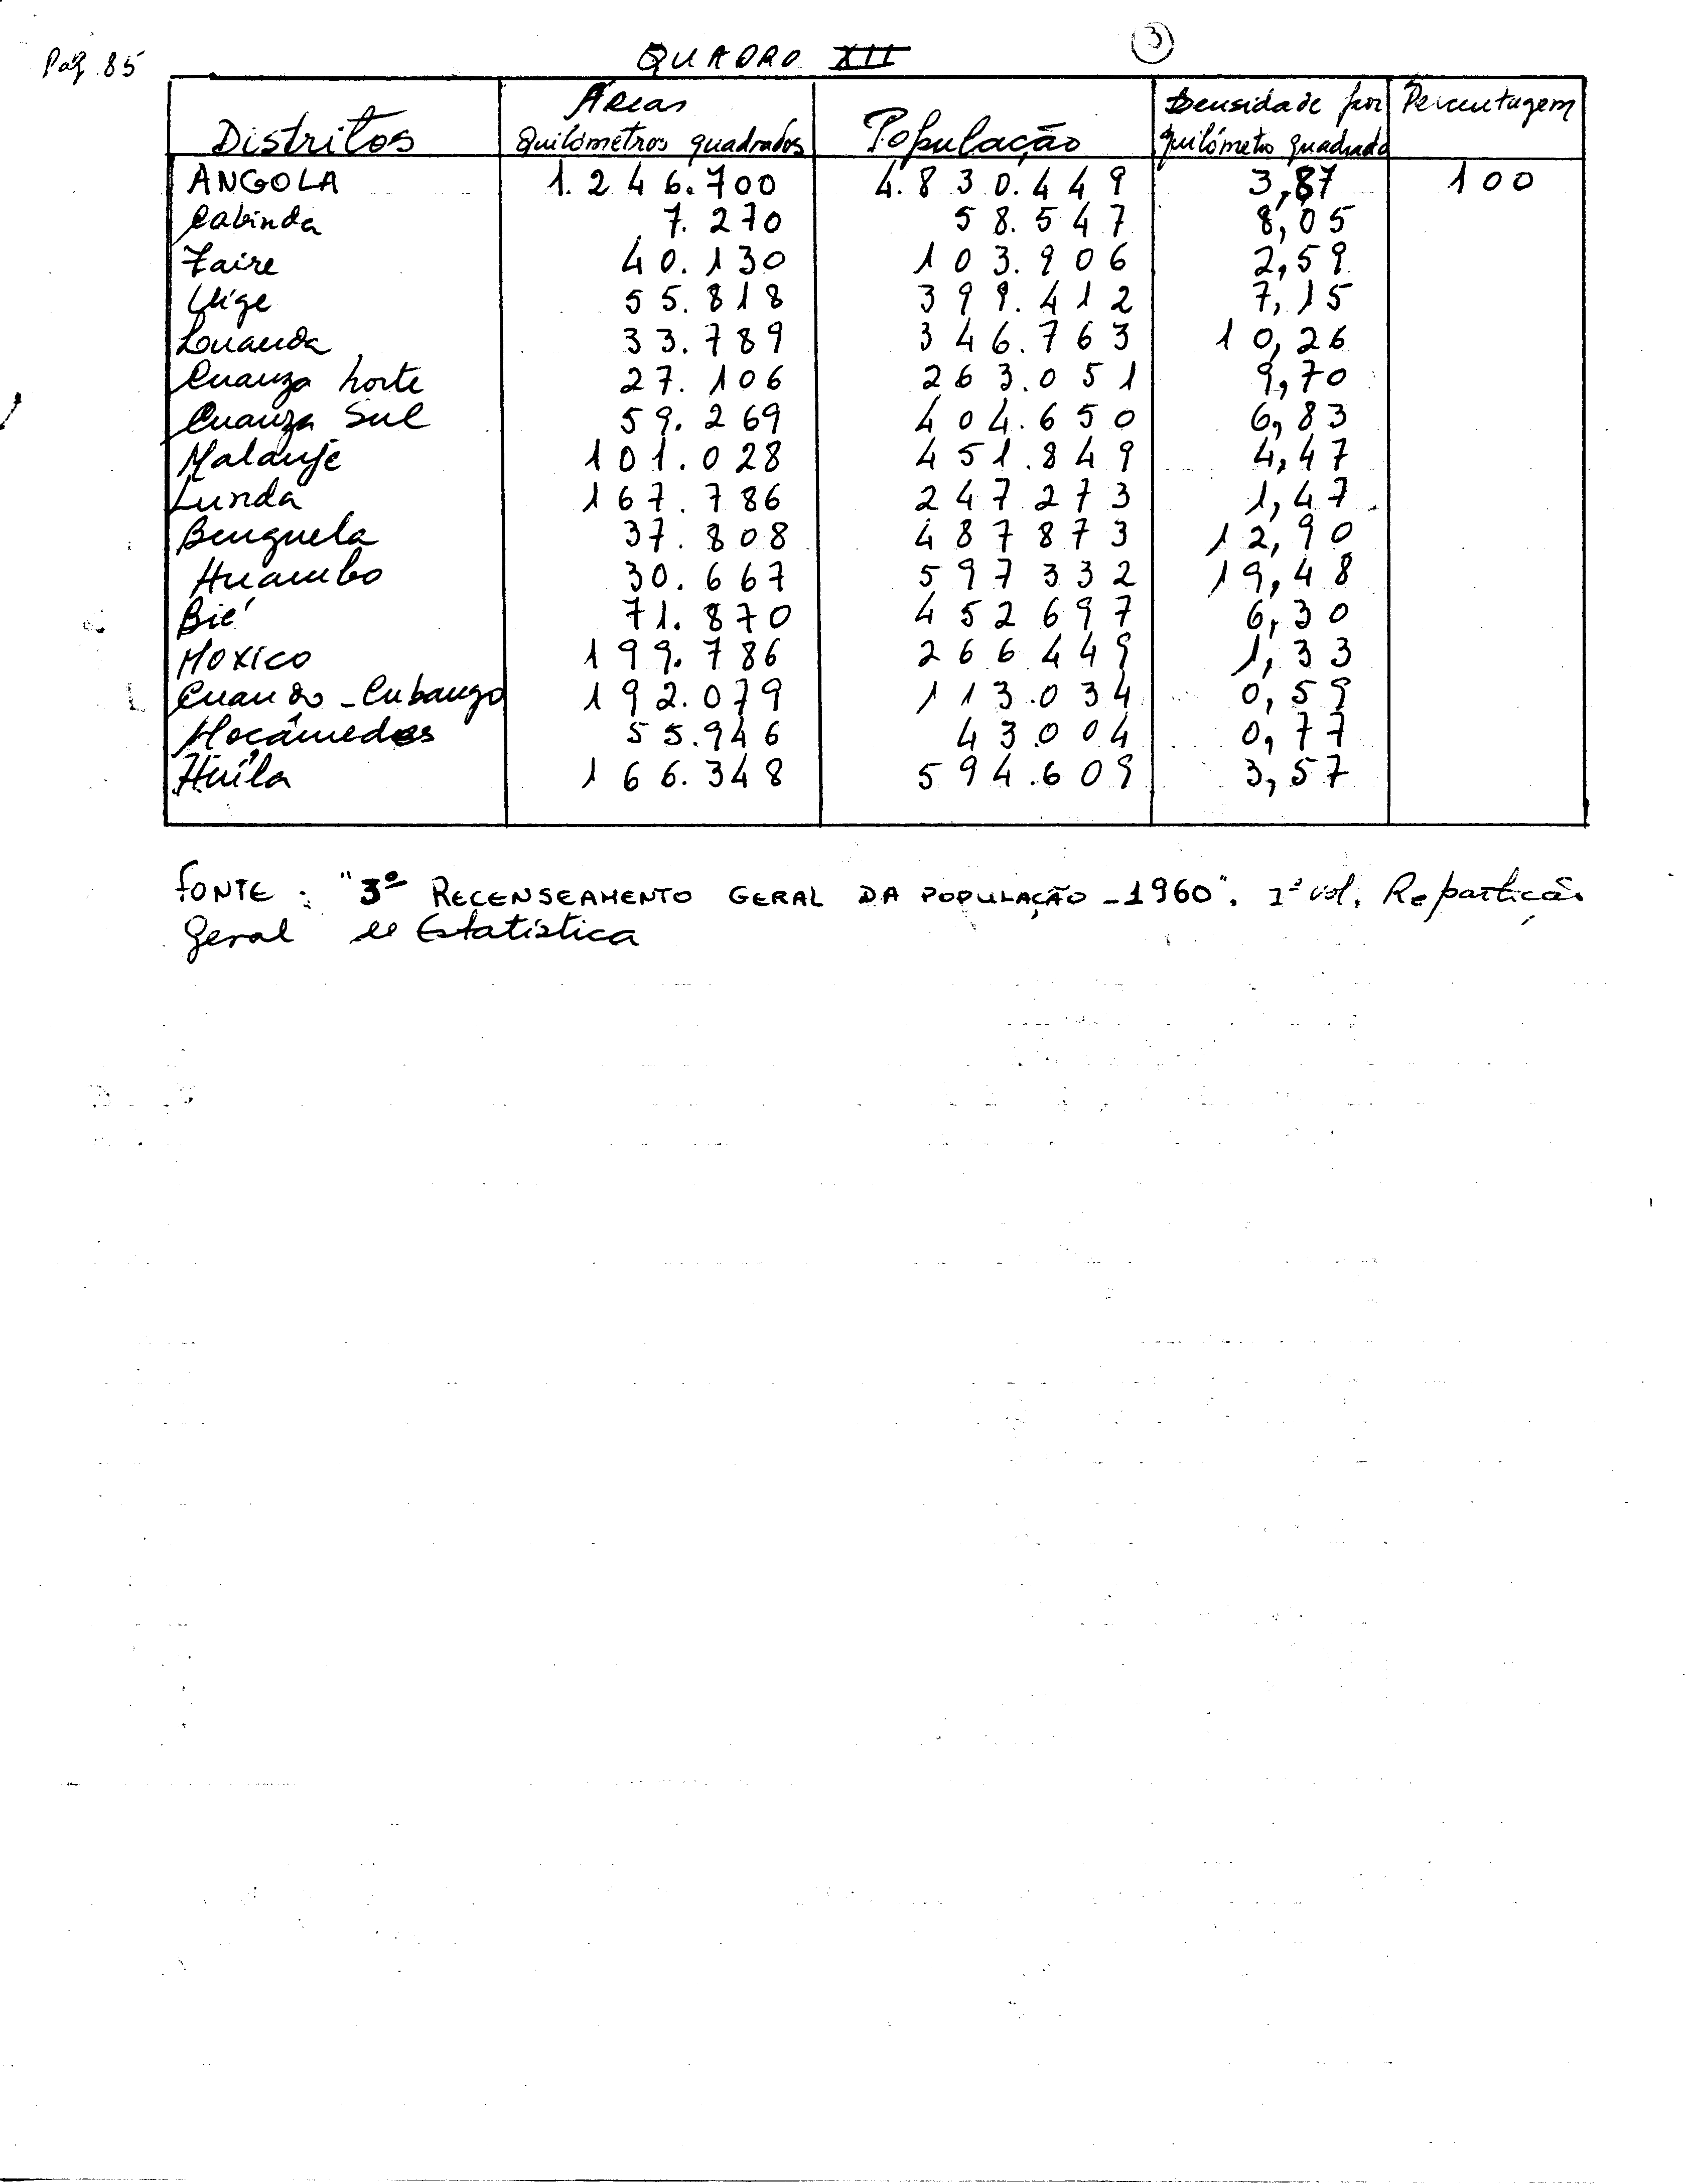 Pág. 85
QUADRO XII
3
Distritos Áreas Quilómetros quadrados População Densidade por quilómetro quadrado Percentagem
ANGOLA 1.246.700 4.830.449 3,87 100
Cabinda 7.270 58.547 8,05
Zaire 40.130 103.906 2,59
Uíge 55.818 399.412 7,15
Luanda 33.789 346.763 10,26
Cuanza Norte 27.106 263.051 9,70
Cuanza Sul 59.269 404.650 6,83
Malanje 101.028 451.849 4,47
Lunda 167.786 247.273 1,47
Benguela 37.808 487873 12,90
Huambo 30.667 597332 19,48
Bié 71.870 452697 6,30
Moxico 199.786 266449 1,33
Cuando-Cubango 192.079 113.034 0,59
Moçâmedes 55.946 43004 0,77
Huíla 166.348 594.609 3,57
FONTE: "3º RECENSEAMENTO GERAL DA POPULAÇÃO - 1960". 1º vol. Repartição
Geral de Estatística